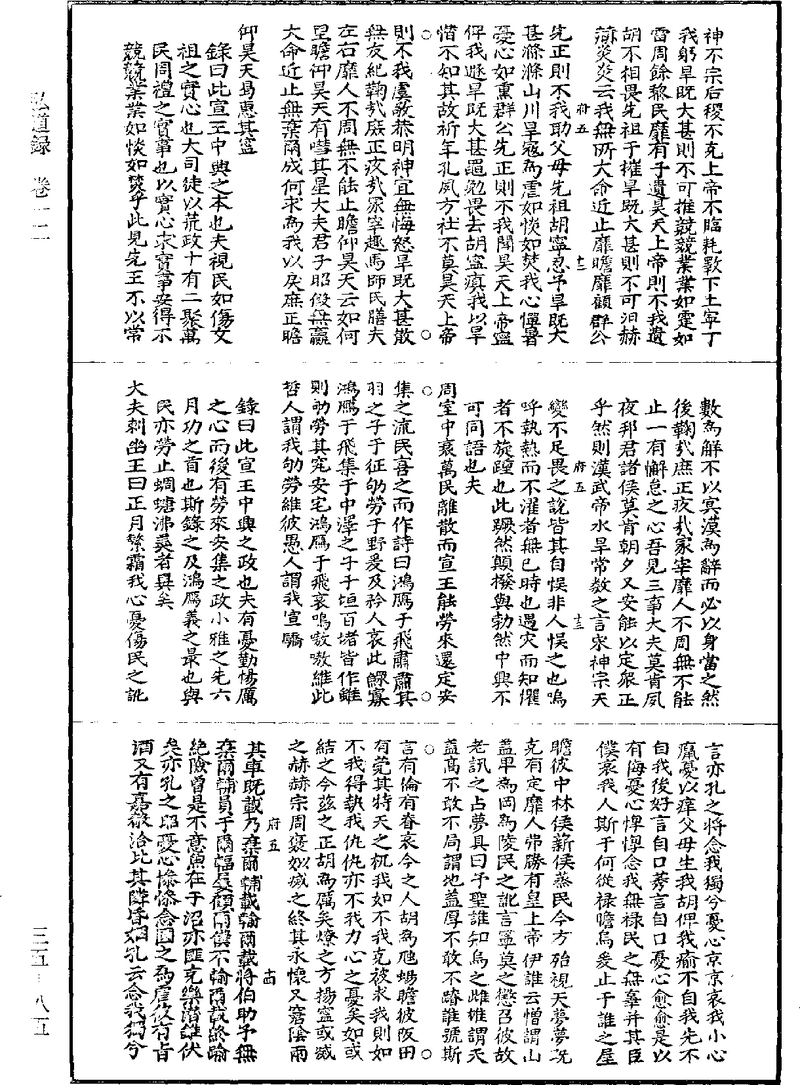 神不宗后稷不克上帝不臨耗斁下土寧丁
我躬旱既大甚則不可推兢兢業業如霆如
雷周餘黎民靡有孑遺昊天上帝則不我遺
胡不相畏先祖于摧旱既大甚則不可沮赫
赫炎炎云我無所大命近止靡瞻靡顧群公
府五
十二
先正則不我助父母先祖胡寧忍予旱既大
甚滌滌山川旱魃為虐如惔如焚我心憚暑
憂心如熏群公先正則不我聞昊天上帝寧
俾我遯旱既大甚黽勉畏去胡寧瘨我以旱
憯不知其故祈年孔夙方社不莫昊天上帝
則不我虞敬恭明神宜無悔怒旱既大甚散
無友紀鞫哉庶正疚哉冡宰趣馬師氏膳夫
左右靡人不周無不能止瞻仰昊天云如何
里瞻仰昊天有嘒其星大夫君子昭假無贏
大命近止無棄爾成何求為我以戾庶正瞻
仰昊天曷惠其寧
錄曰此宣王中興之本也夫視民如傷文
祖之實心也大司徒以荒政十有二聚萬
民周禮之實事也以實心求實事安得不
兢兢業業如惔如焚乎此見先王不以常
數為解不以冥漠為辭而必以身當之然
後鞫哉庶正疚哉冡宰靡人不周無不能
止一有懈怠之心吾見三事大夫莫肯夙
夜邦君諸侯莫肯朝夕又安能以定衆正
乎然則漢武帝水旱常數之言宋神宗天
府五
十三
變不足畏之說皆其自悞非人悞之也嗚
呼執熱而不濯者無已時也遇灾而知懼
者不旋踵也此蹶然顛撥與勃然中興不
可同語也夫
周室中衰萬民離散而宣王能勞來還定安
集之流民喜之而作詩曰鴻鴈于飛肅肅其
羽之子于征劬勞于野爰及矜人哀此鰥寡
鴻鴈于飛集于中澤之子于垣百堵皆作雖
則劬勞其究安宅鴻鴈于飛哀鳴嗷嗷維此
哲人謂我劬勞維彼愚人謂我宣驕
錄曰此宣王中興之政也夫有憂勤惕厲
之心而後有勞來安集之政小雅之先六
月功之首也斯錄之及鴻鴈義之最也與
民亦勞止蜩螗沸羹者異矣
大夫刺幽王曰正月繁霜我心憂傷民之訛
言亦孔之將念我獨兮憂心京京哀我小心
癙憂以痒父母生我胡俾我瘉不自我先不
自我後好言自口莠言自口憂心愈愈是以
有侮憂心惸惸念我無祿民之無辜并其臣
僕哀我人斯于何從祿瞻烏爰止于誰之屋
瞻彼中林侯薪侯蒸民今方殆視天夢夢既
克有定靡人弗勝有皇上帝伊誰云憎謂山
蓋卑為岡為陵民之訛言寧莫之懲召彼故
老訊之占夢具曰予聖誰知烏之雌雄謂天
蓋高不敢不局謂地蓋厚不敢不蹐誰號斯
言有倫有脊哀今之人胡為虺蜴瞻彼阪田
有菀其特天之扤我如不我克彼求我則如
不我得執我仇仇亦不我力心之憂矣如或
結之今茲之正胡為厲矣燎之方揚寧或滅
之赫赫宗周褒姒烕之終其永懷又窘陰雨
府五
十四
其車既載乃棄爾輔載輸爾載將伯助予無
棄爾輔員于爾輻屢顧爾僕不輸爾載終踰
絕險曾是不意魚在于沼亦匪克樂潛雖伏
矣亦孔之炤憂心慘慘念國之為虐彼有旨
酒又有嘉殽洽比其隣昏姻孔云念我獨兮
弘道錄　卷一二
三五-八五